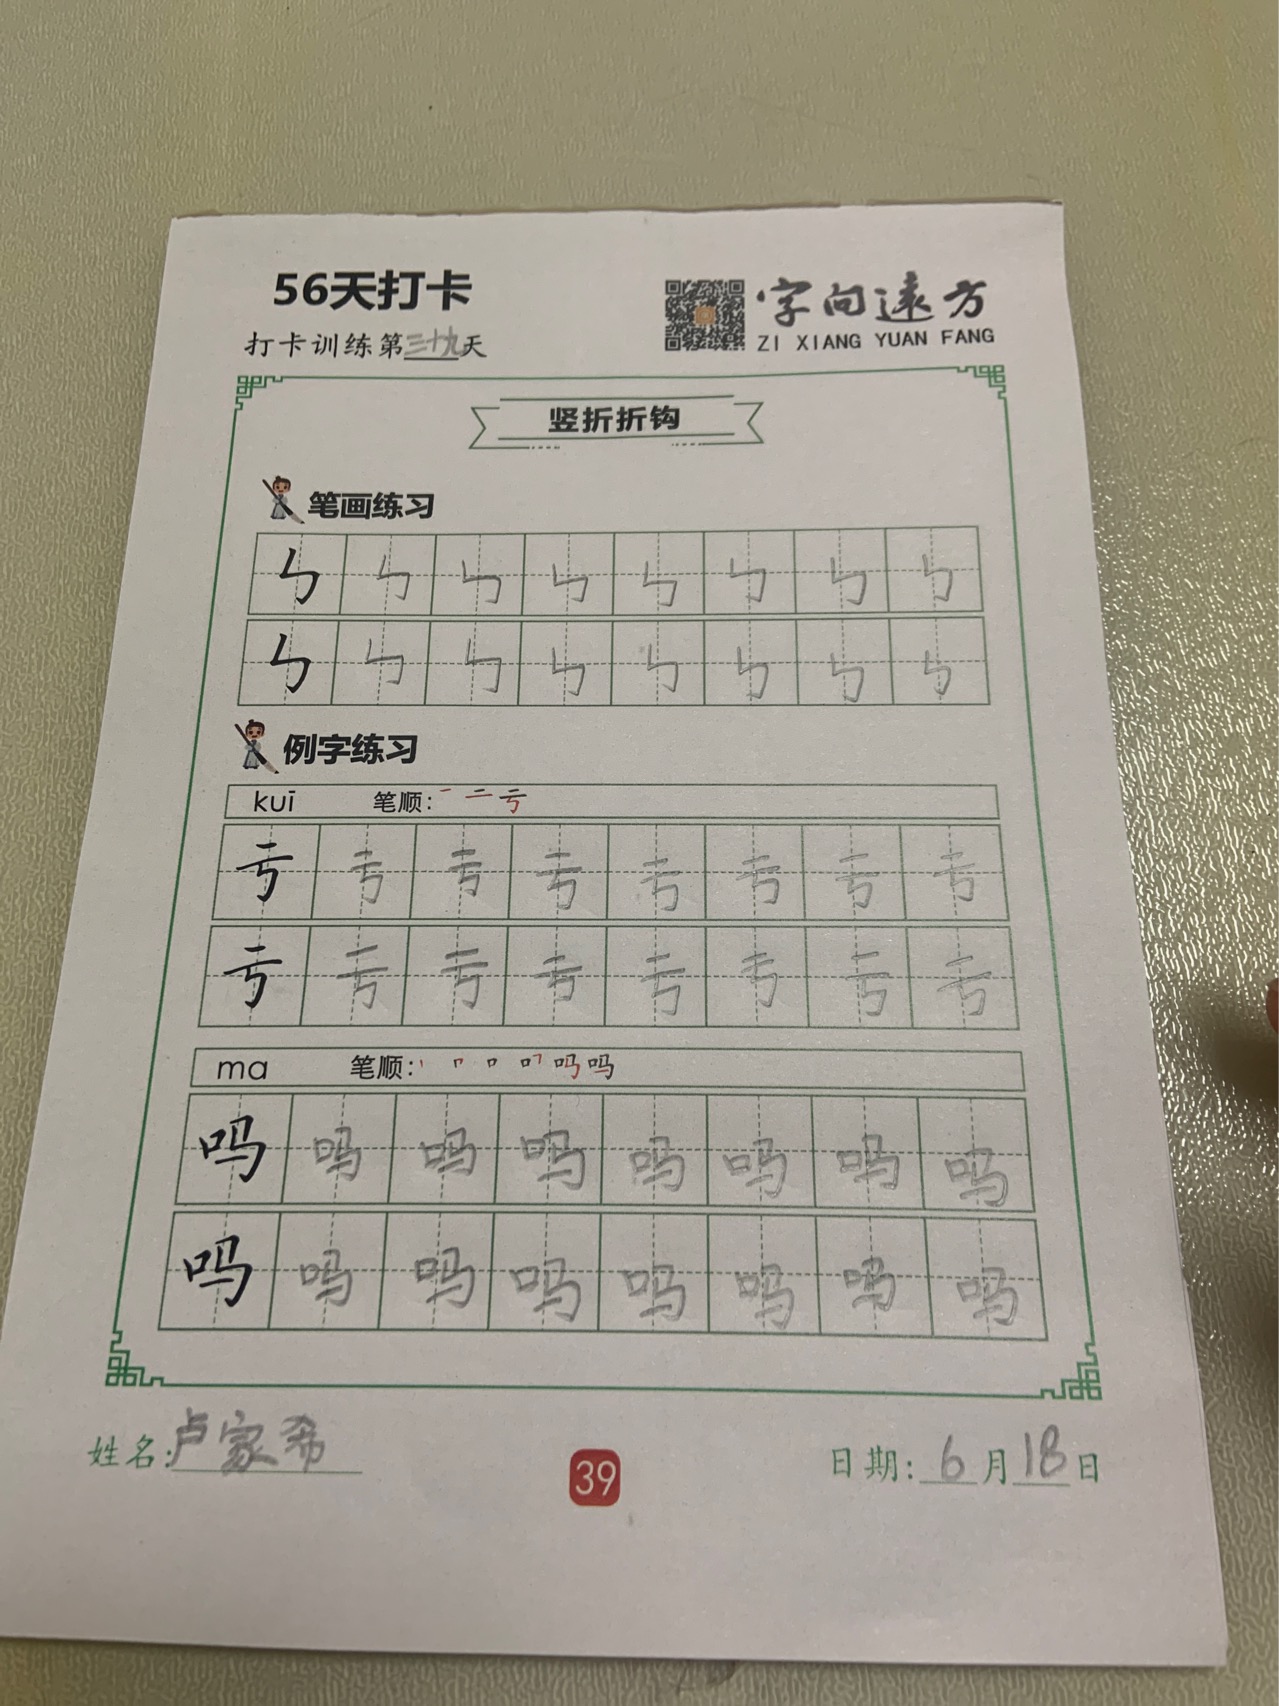 56天打卡
字向远方
ZI XIANG YUAN FANG
打卡训练第三十九天
竖折折钩
笔画练习
ㄣ ㄣ ㄣ ㄣ ㄣ ㄣ ㄣ ㄣ
ㄣ ㄣ ㄣ ㄣ ㄣ ㄣ ㄣ ㄣ
例字练习
kuī 笔顺: 一 二 亏
亏 亏 亏 亏 亏 亏 亏 亏
亏 亏 亏 亏 亏 亏 亏 亏
ma 笔顺: 丨 𠃍 口 叮 吗 吗
吗 吗 吗 吗 吗 吗 吗 吗
吗 吗 吗 吗 吗 吗 吗 吗
姓名:卢家希
39
日期:6月18日